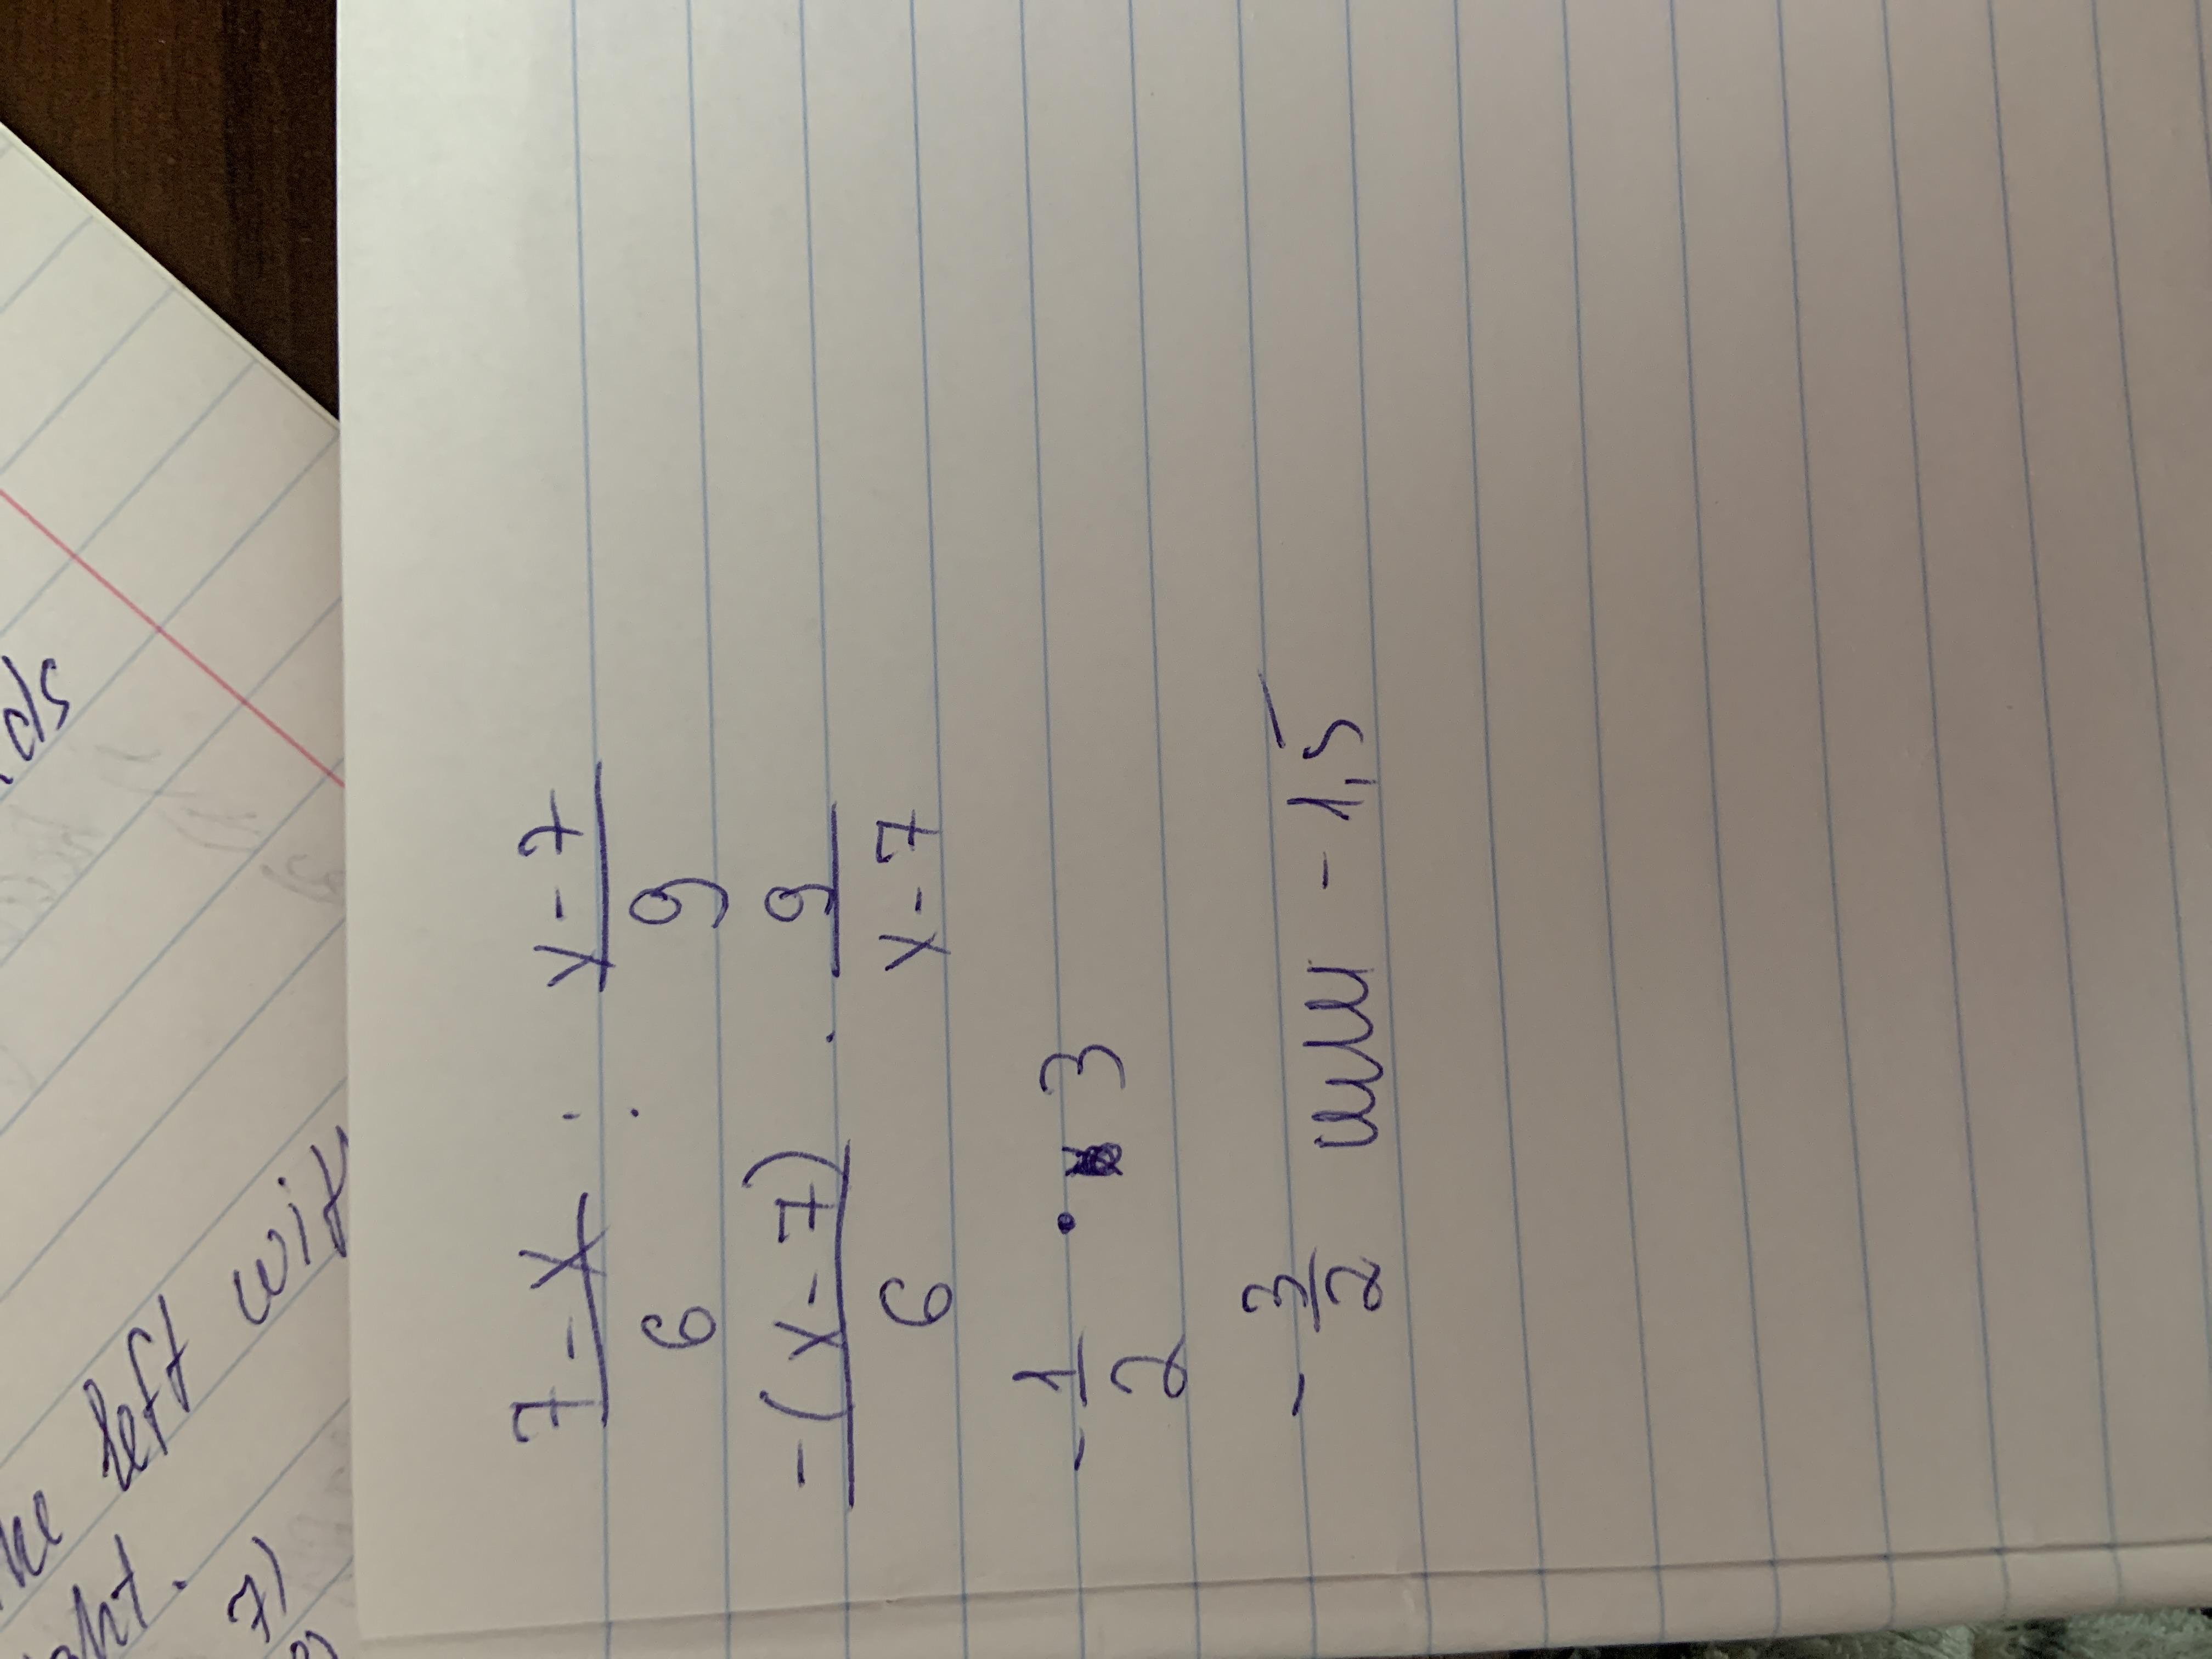 ds
he left with
ght.
7)
(7 - x)/6 : (x - 7)/9
-(x - 7)/6 · 9/(x - 7)
-1/2 · 3
-3/2 или - 1,5